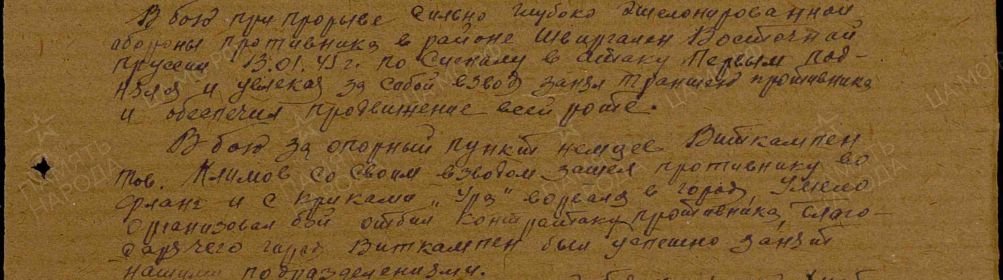 В бою при прорыве сильно глубоко эшелонированной
обороны противника в районе Швиргален Восточной
Пруссии 13.01.45 г. по сигналу в атаку первым под-
нялся и увлекая за собой взвод занял траншею противника
и обеспечил продвижение всей роте.
В бою за опорный пункт немцев Виткампен
тов. Климов со своим взводом зашел противнику во
фланг и с криками „Ура" ворвался в город, умело
организовал бой отбил контратаку противника, благо-
даря чего город Виткампен был успешно занят
нашими подразделениями.
ПАМЯТЬ НАРОДА
ЦАМО РФ